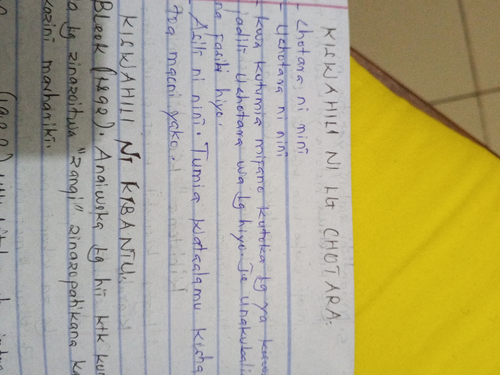 KISWAHILI NI LG CHOTARA.
- Chotara ni nini
- Uchotara ni nini
- kwa kutumia mifano kutoka lg ya
jadili Uchotara wa lg hiyo. Je unakubali
na fasili hiyo.
- Asili ni nini. Tumia wataalamu kisha
toa maoni yako.
KISWAHILI NI KIBANTU.
Bleek (1892). Anaiweka lg hii ktk
lg zinazoitwa "zangi" zinazopatikana